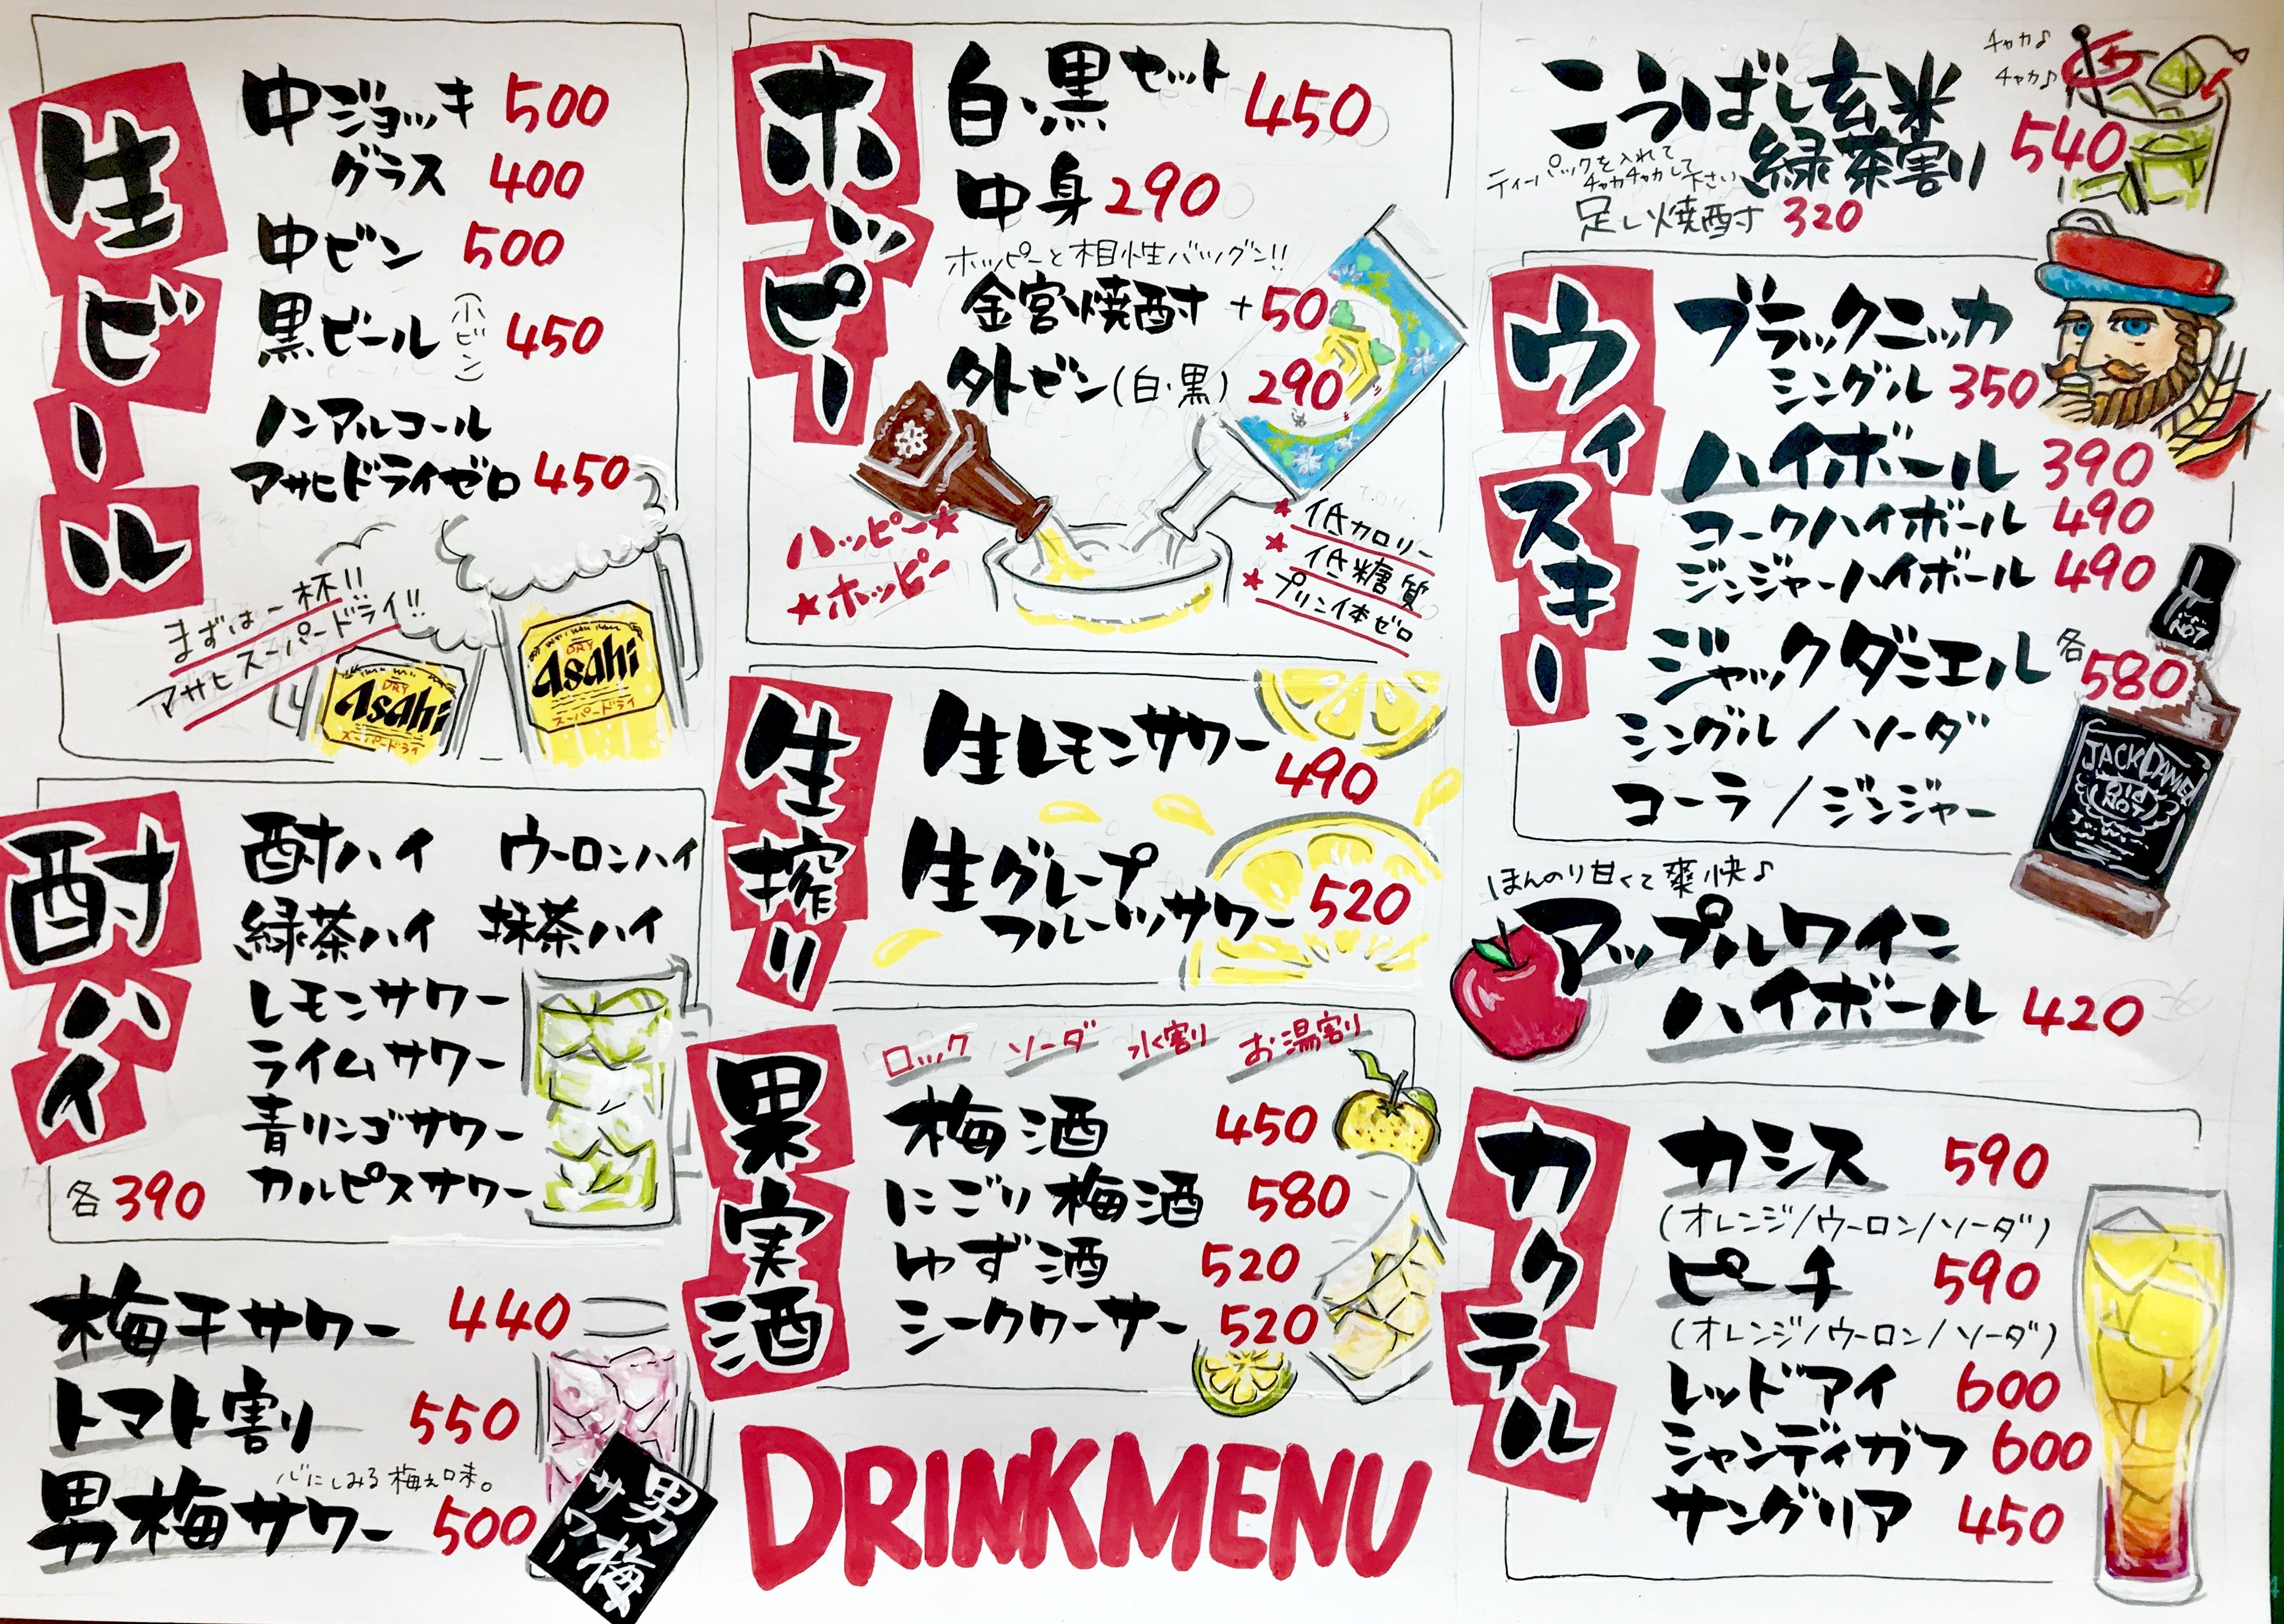 生ビール
中ジョッキ 500
グラス 400
中ビン 500
黒ビール (小ビン) 450
ノンアルコール
アサヒドライゼロ 450
まずは一杯!!
アサヒスーパードライ!!
DRY
Asahi
スーパードライ
DRY
Asahi
スーパードライ
酎ハイ
酎ハイ ウーロンハイ
緑茶ハイ 抹茶ハイ
レモンサワー
ライムサワー
青リンゴサワー
カルピスサワー
各390
梅干サワー 440
トマト割り 550
心にしみる梅え味。
男梅サワー 500
男梅
サワー
ホッピー
白・黒セット 450
中身 290
ホッピーと相性バツグン!!
金宮焼酎 +50
外ビン(白・黒) 290
ハッピー★
★ホッピー
★低カロリー
★低糖質
★プリン体ゼロ
生搾り
生レモンサワー 490
生グレープ
フルーツサワー 520
果実酒
ロック ソーダ 水割り お湯割り
梅酒 450
にごり梅酒 580
ゆず酒 520
シークワーサー 520
DRINKMENU
チャカ♪
チャカ♪
こうばし玄米
緑茶割り 540
ティーパックを入れて
チャカチャカして下さい
足し焼酎 320
ウィスキー
ブラックニッカ
シングル 350
ハイボール 390
コークハイボール 490
ジンジャーハイボール 490
ジャックダニエル 各580
シングル/ソーダ
コーラ/ジンジャー
No7
JACK DANIEL
Old
No7
ほんのり甘くて爽快♪
アップルワイン
ハイボール 420
カクテル
カシス 590
(オレンジ/ウーロン/ソーダ)
ピーチ 590
(オレンジ/ウーロン/ソーダ)
レッドアイ 600
シャンディガフ 600
サングリア 450